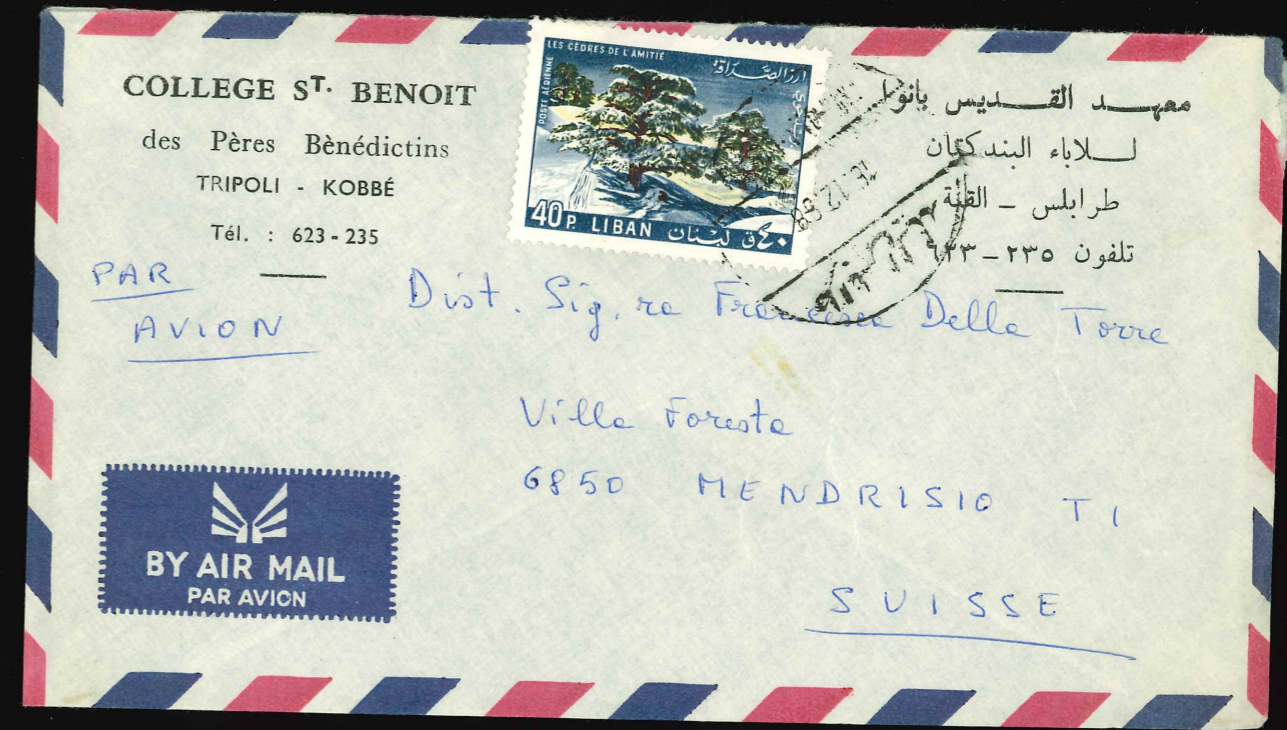 COLLEGE ST. BENOIT
des Pères Bènédictins
TRIPOLI - KOBBÉ
Tél. : 623-235
LES CÈDRES DE L'AMITIÉ
POSTE AÉRIENNE
أرز الصداقة
40P. LIBAN لبنان ٤٠ق
معهد القديس بانوا
للاباء البندكتان
طرابلس - القبة
تلفون ٢٣٥-٦٢٣
16.12.68
PAR
AVION
Dist. Sig.ra Francesca Della Torre
Villa Foresta
6850 MENDRISIO TI
SUISSE
BY AIR MAIL
PAR AVION